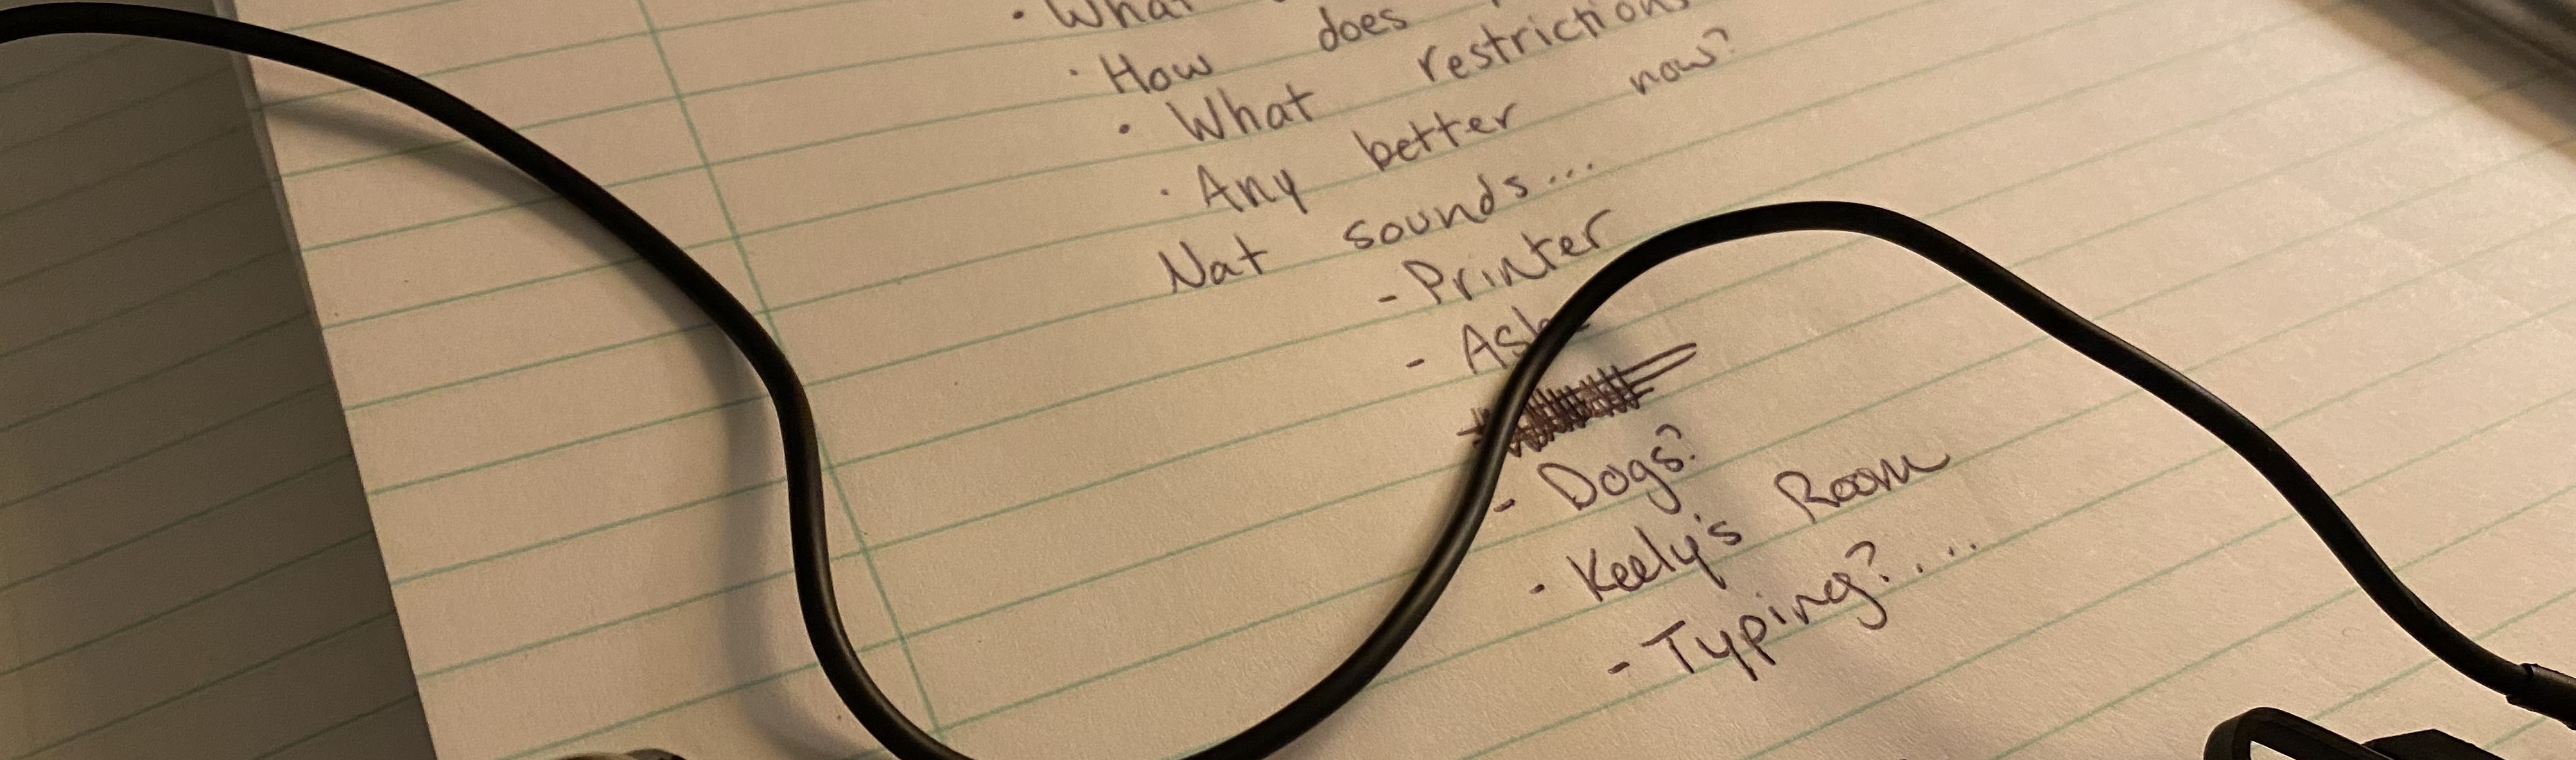 · What
· How does
· What restrictions
· Any better now?
Nat sounds...
- Printer
-
- Dogs?
- Keely's Room
- Typing?....